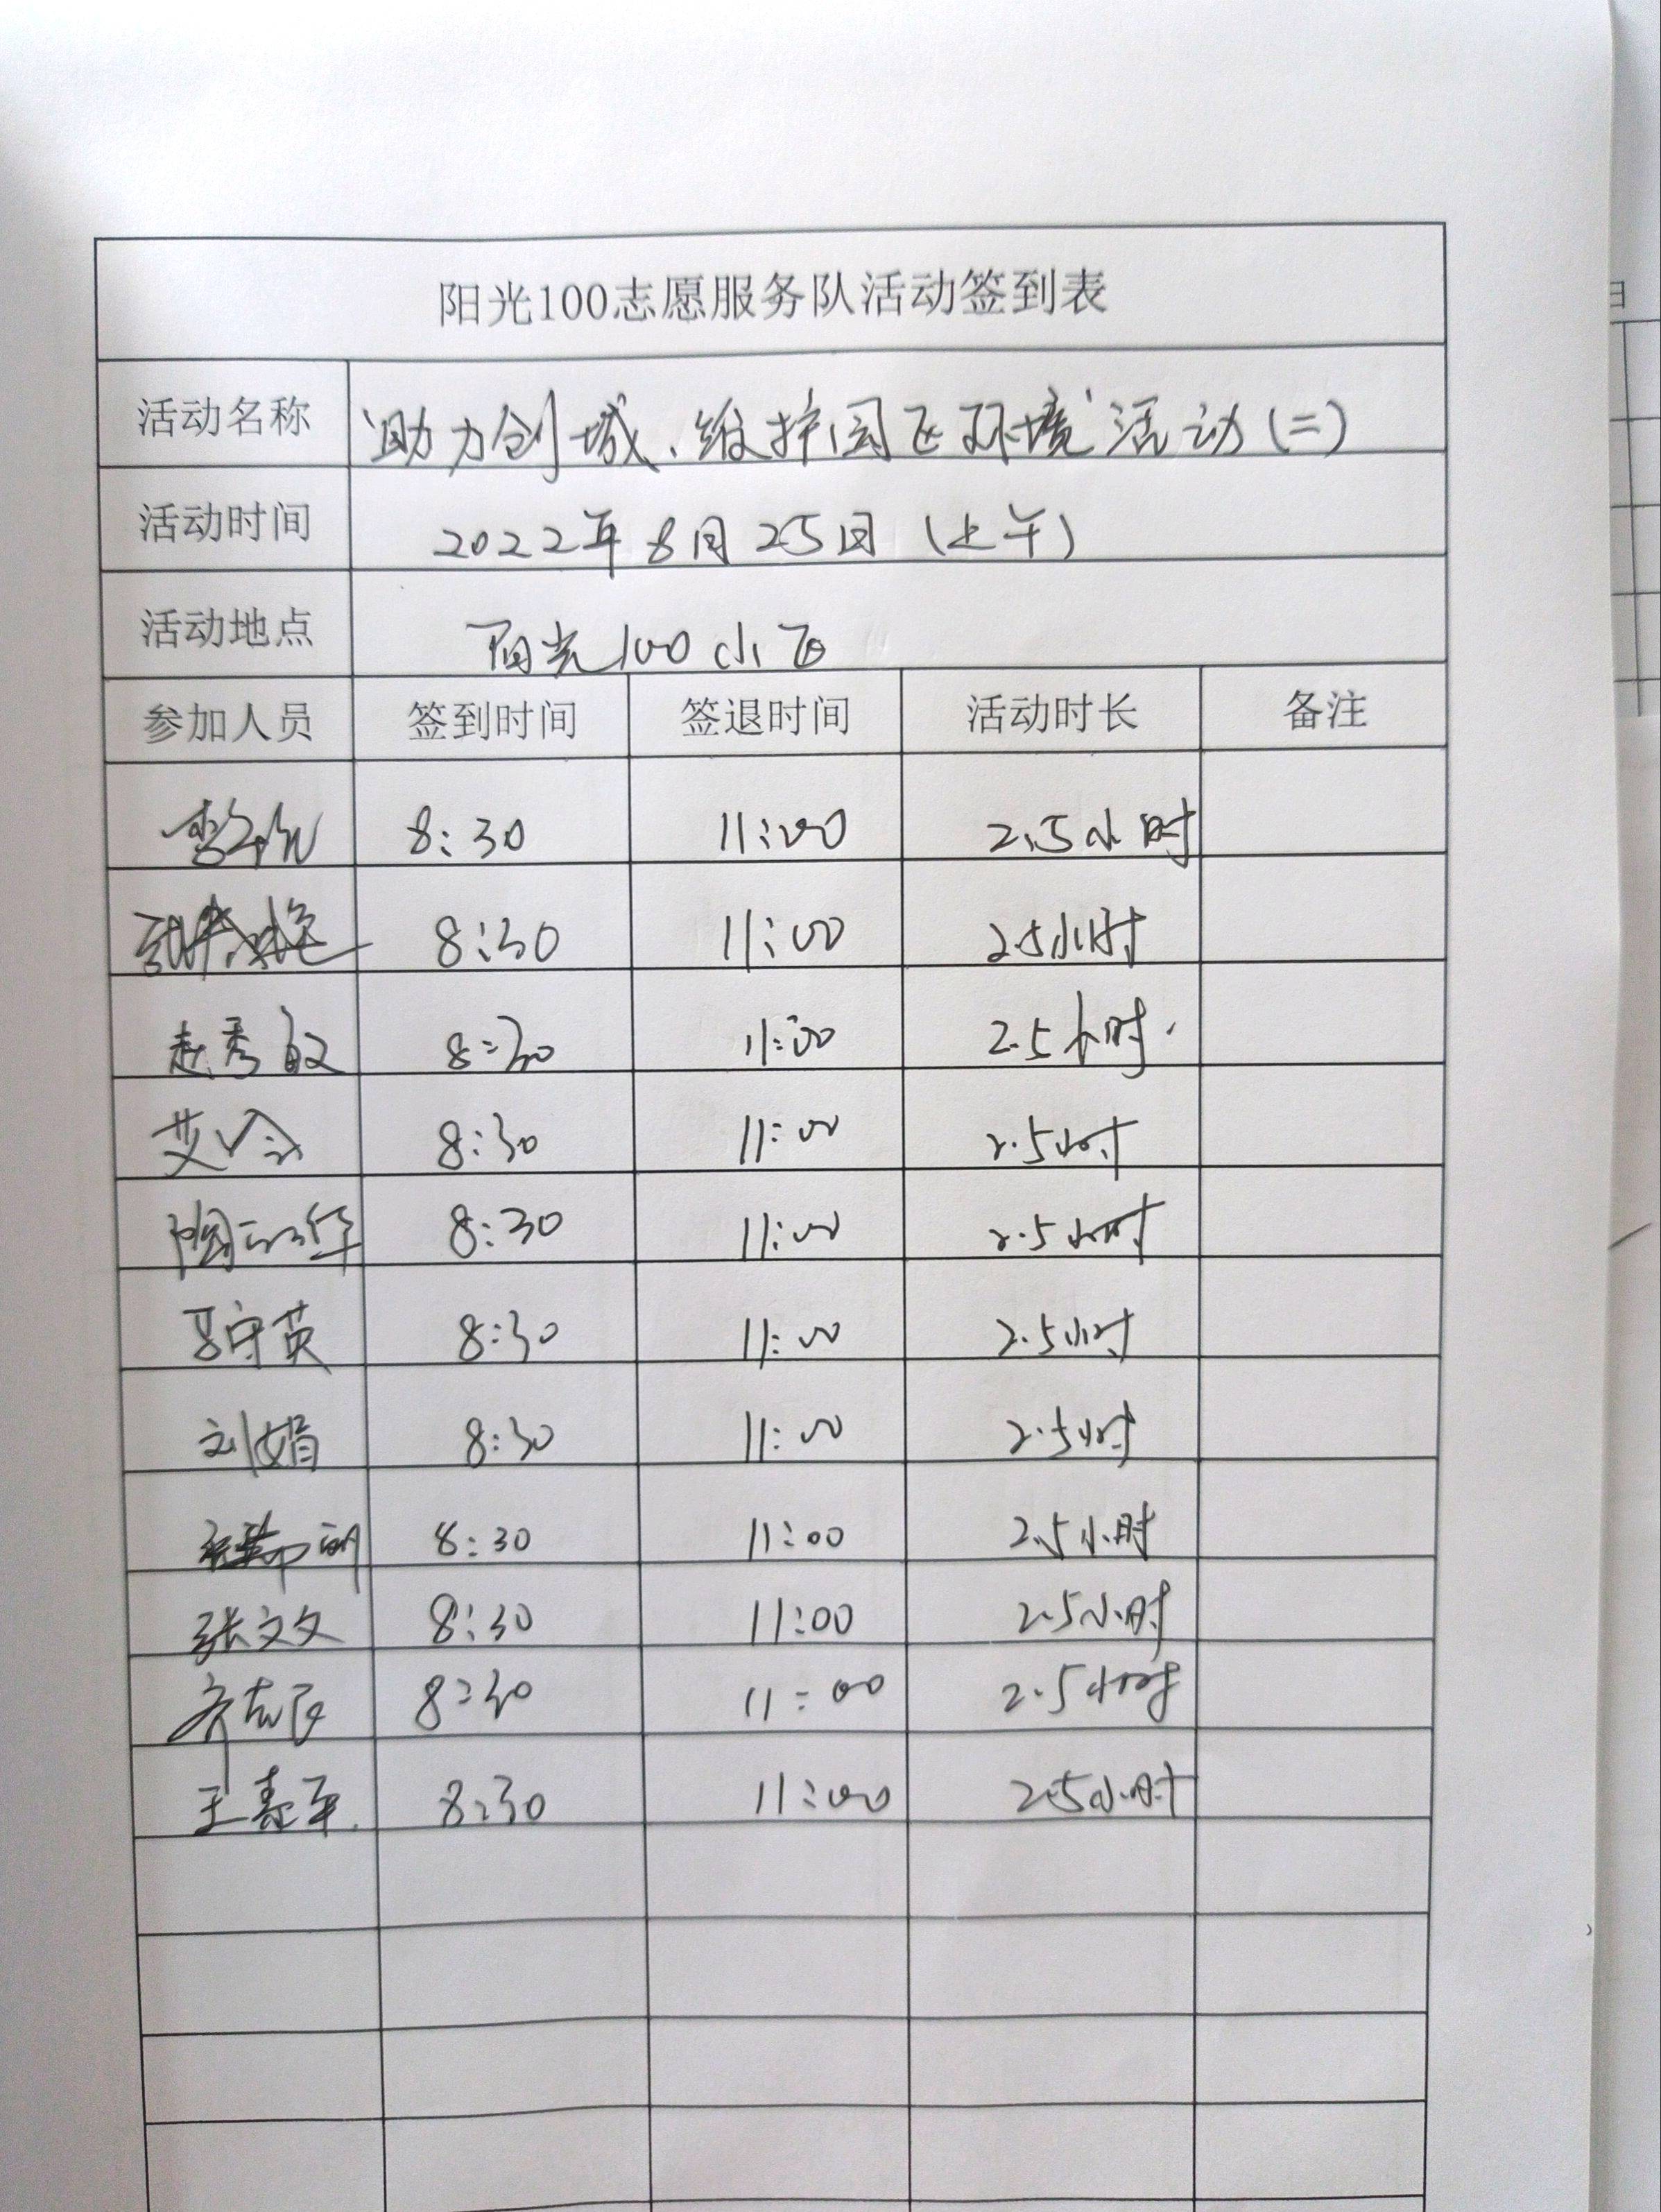 阳光100志愿服务队活动签到表
活动名称 “助力创城、维护园区环境”活动(二)
活动时间 2022年8月25日(上午)
活动地点 阳光100小区
参加人员 签到时间 签退时间 活动时长 备注
8:30 11:00 2.5小时
8:30 11:00 2.5小时
赵秀敏 8:30 11:00 2.5小时
8:30 11:00 2.5小时
8:30 11:00 2.5小时
吕守英 8:30 11:00 2.5小时
刘娟 8:30 11:00 2.5小时
8:30 11:00 2.5小时
张文文 8:30 11:00 2.5小时
8:30 11:00 2.5小时
王春平 8:30 11:00 2.5小时